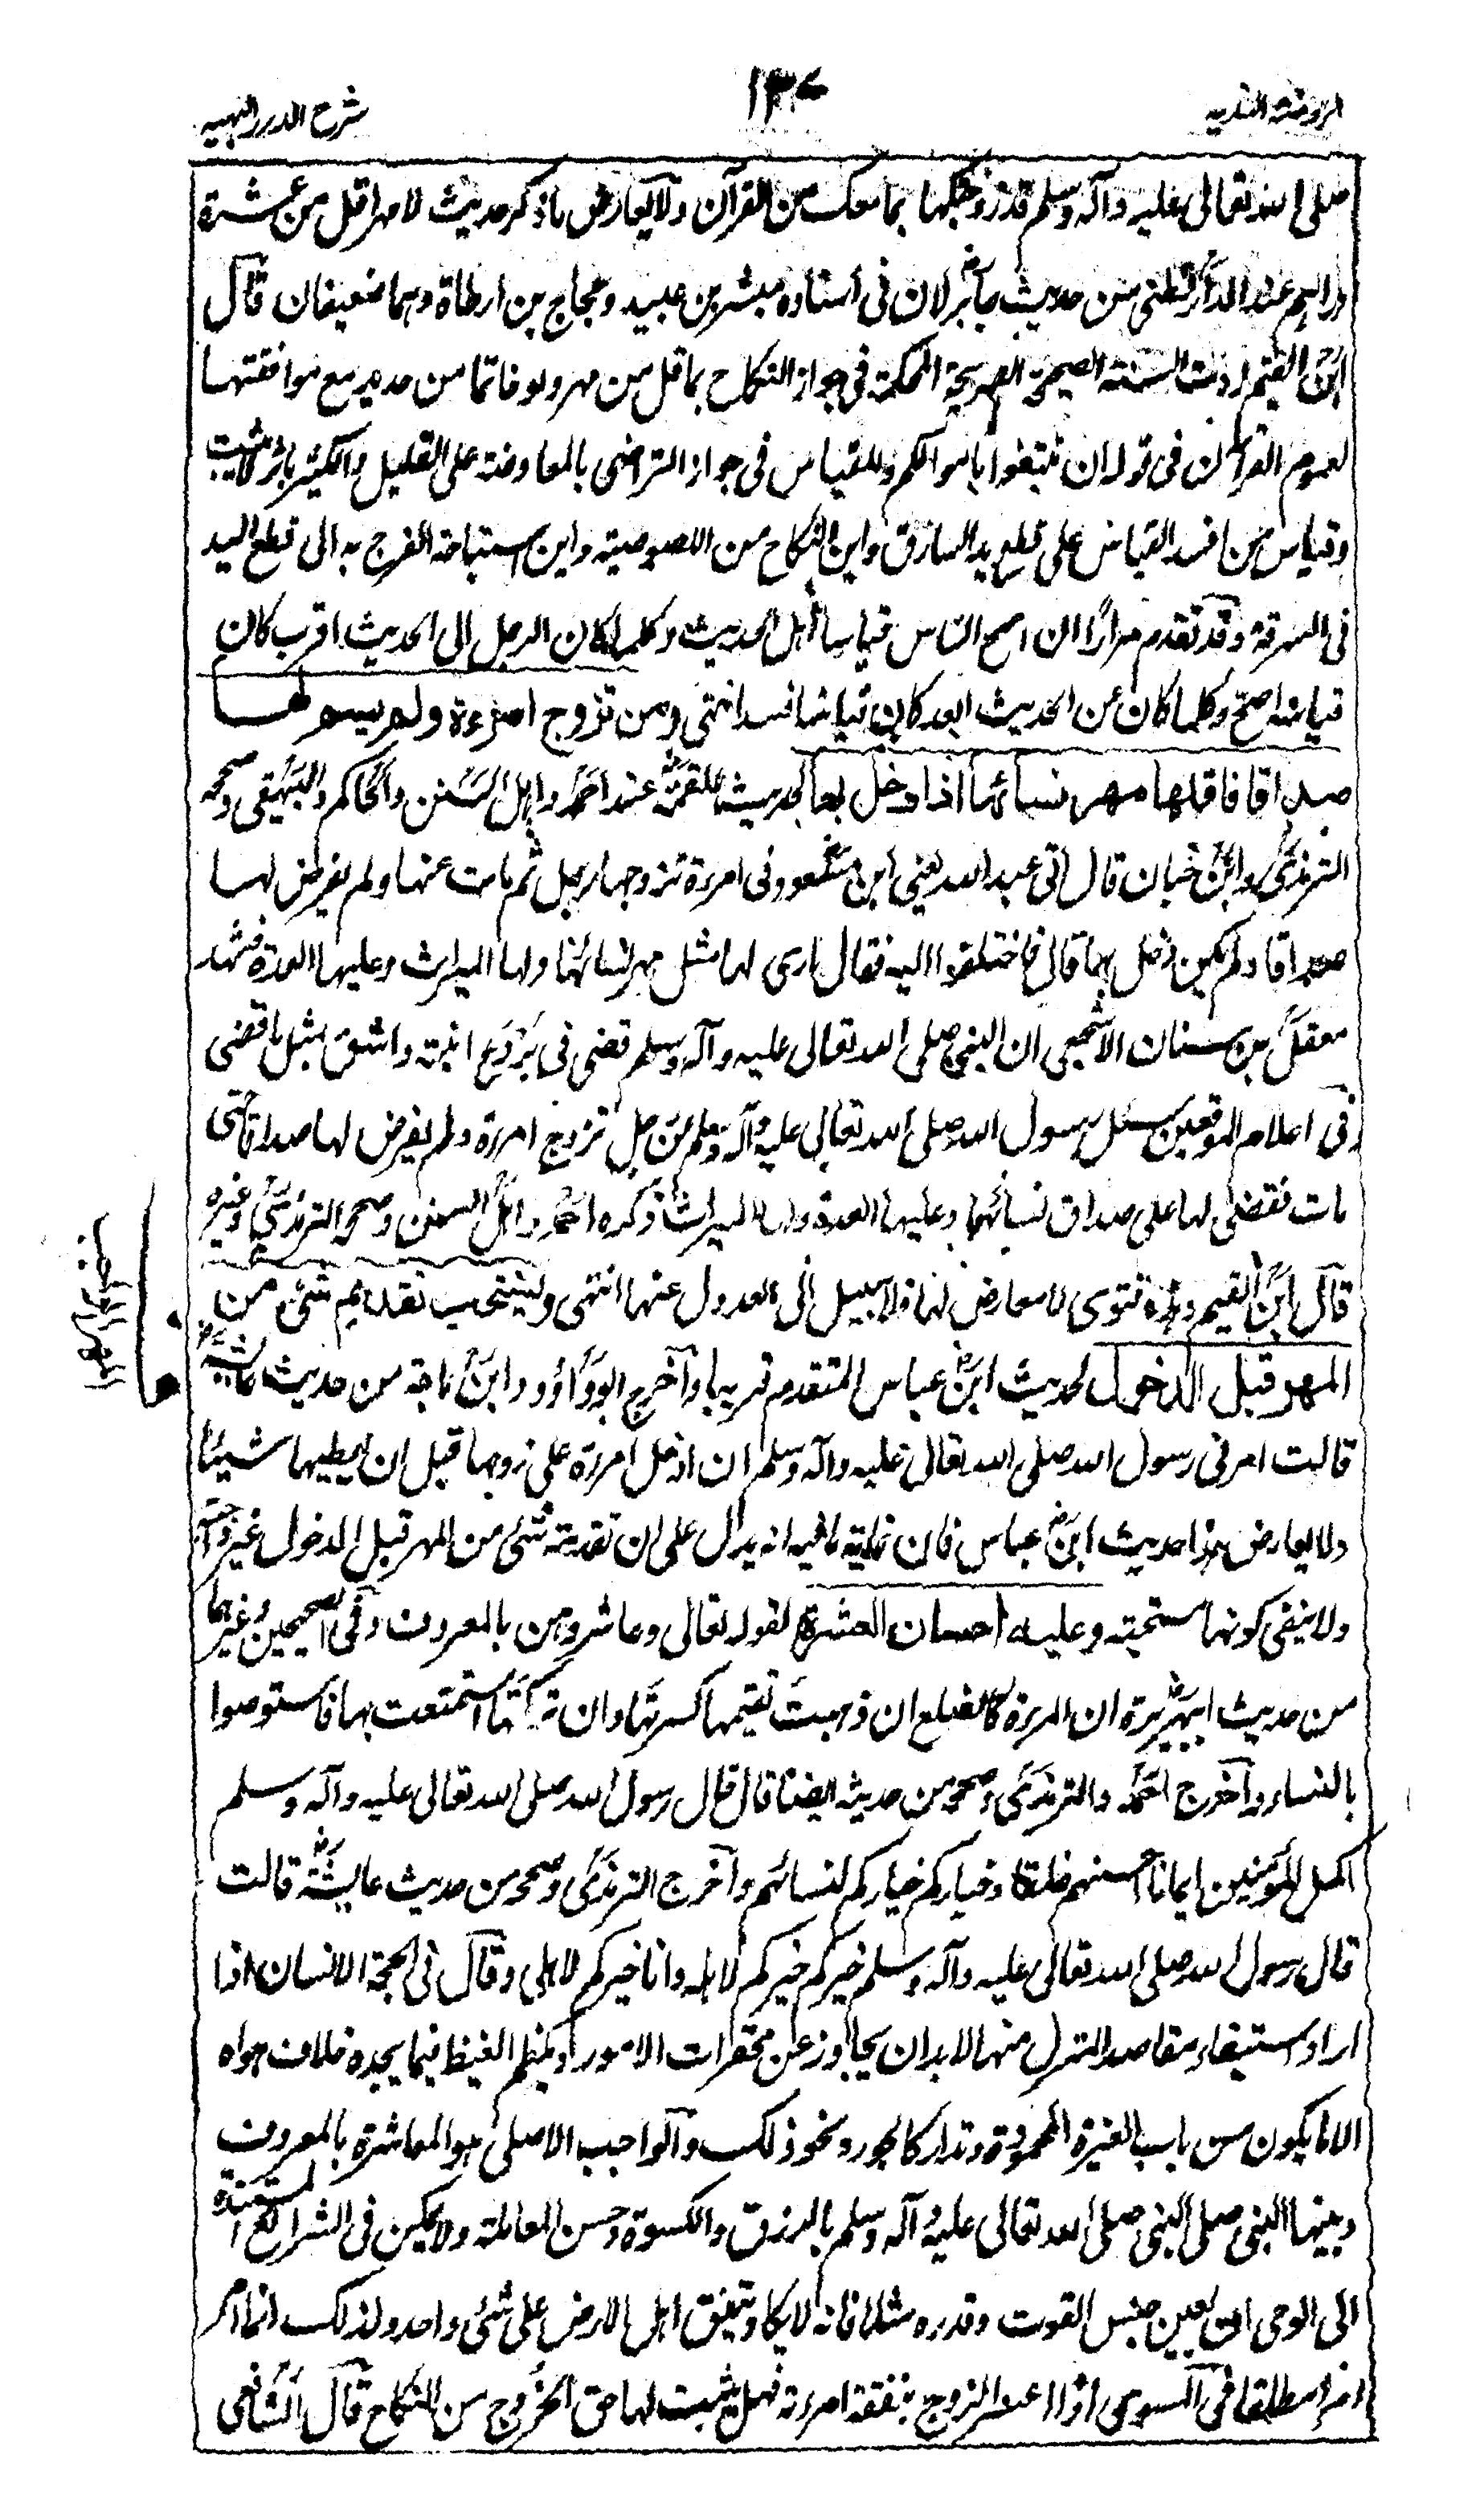 الروضة الندية
١٣٧
شرح الدرر البهية
صلى الله تعالى عليه وآله وسلم قد زوجتكها بما معك من القرآن ولا يعارض ما ذكر حديث لا مهر اقل من عشرة
دراهم عند الدارقطني من حديث جابر لان فى اسناده مبشر بن عبيد وحجاج بن ارطاة وهما ضعيفان قال
ابن القيم وردت السنة الصحيحة الصريحة المحكمة فى جواز النكاح بما قل من مهر ولو خاتما من حديد مع موافقتها
لعموم القرآن فى قوله ان تبتغوا باموالكم وللقياس فى جواز التراضى بالمعاوضة على القليل والكثير باثر لا يثبت
وقياس من افسد القياس على قطع يد السارق واين النكاح من اللصوصية واين استباحة الفرج به الى قطع اليد
فى السرقة وقد تقدم مرارًا ان اصح الناس قياسا اهل الحديث وكلما كان الرجل الى الحديث اقرب كان
قياسه اصح وكلما كان عن الحديث ابعد كان قياسه افسد انتهى ومن تزوج امرءة ولم يسم لها
صداقا فاقلها مهر نسائها اذا دخل بها لحديث علقمة عند احمد واهل السنن والحاكم والبيهقى وصححه
الترمذى وابن حبان قال اتى عبد الله يعنى ابن مسعود فى امرءة تزوجها رجل ثم مات عنها ولم يفرض لها
صداقا ولم يكن دخل بها قال فاختلفوا اليه فقال ارى لها مثل مهر نسائها ولها الميراث وعليها العدة فشهد
معقل بن سنان الاشجعى ان النبى صلى الله تعالى عليه وآله وسلم قضى فى بروع ابنة واشق بمثل ما قضى
وفى اعلام الموقعين سئل رسول الله صلى الله تعالى عليه وآله وسلم عن رجل تزوج امرءة ولم يفرض لها صداقا حتى
مات فقضى لها على صداق نسائها وعليها العدة ولها الميراث ذكره احمد واهل السنن وصححه الترمذى وغيره
قال ابن القيم وهذه فتوى لا معارض لها فلا سبيل الى العدول عنها انتهى ويستحب تقديم شئ من
المهر قبل الدخول لحديث ابن عباس المتقدم قريبا واخرج ابو داؤد وابن ماجة من حديث عائشة
قالت امرنى رسول الله صلى الله تعالى عليه وآله وسلم ان ادخل امرءة على زوجها قبل ان يعطيها شيئا
ولا يعارض هذا حديث ابن عباس فان غاية ما فيه انه يدل على ان تقدمة شئ من المهر قبل الدخول غير واجبة
ولا ينفى كونها مستحبة وعليه احسان العشرة لقوله تعالى وعاشروهن بالمعروف وفى الصحيحين وغيرهما
من حديث ابى هريرة ان المرءة كالضلع ان ذهبت تقيمها كسرتها وان تركتها استمتعت بها فاستوصوا
بالنساء واخرج احمد والترمذى وصححه من حديثه ايضا قال قال رسول الله صلى الله تعالى عليه وآله وسلم
اكمل المؤمنين ايمانا احسنهم خلقا وخياركم خياركم لنسائهم واخرج الترمذى وصححه من حديث عائشة قالت
قال رسول الله صلى الله تعالى عليه وآله وسلم خيركم خيركم لاهله وانا خيركم لاهلى وقال فى الحجة الانسان اذا
اراد استيفاء مقاصد المنزل منها لا بد ان يجاوز عن محقرات الامور او يكظم الغيظ فيما يجده خلاف هواه
الا ما يكون من باب الغيرة المحمودة وتدارك الجور ونحو ذلك والواجب الاصلى هو المعاشرة بالمعروف
وبينها النبى صلى النبى صلى الله تعالى عليه وآله وسلم بالرزق والكسوة وحسن المعاملة ولا يمكن فى الشرائع المستندة
الى الوحى ان يعين جنس القوت وقدره مثلا فانه لا يكاد يتفق اهل الارض على شئ واحد ولذلك انما امر
امرا مطلقا فى المسوى اذا اعسر الزوج بنفقة امرءته فهل يثبت لها حق الخروج من النكاح قال الشافعى